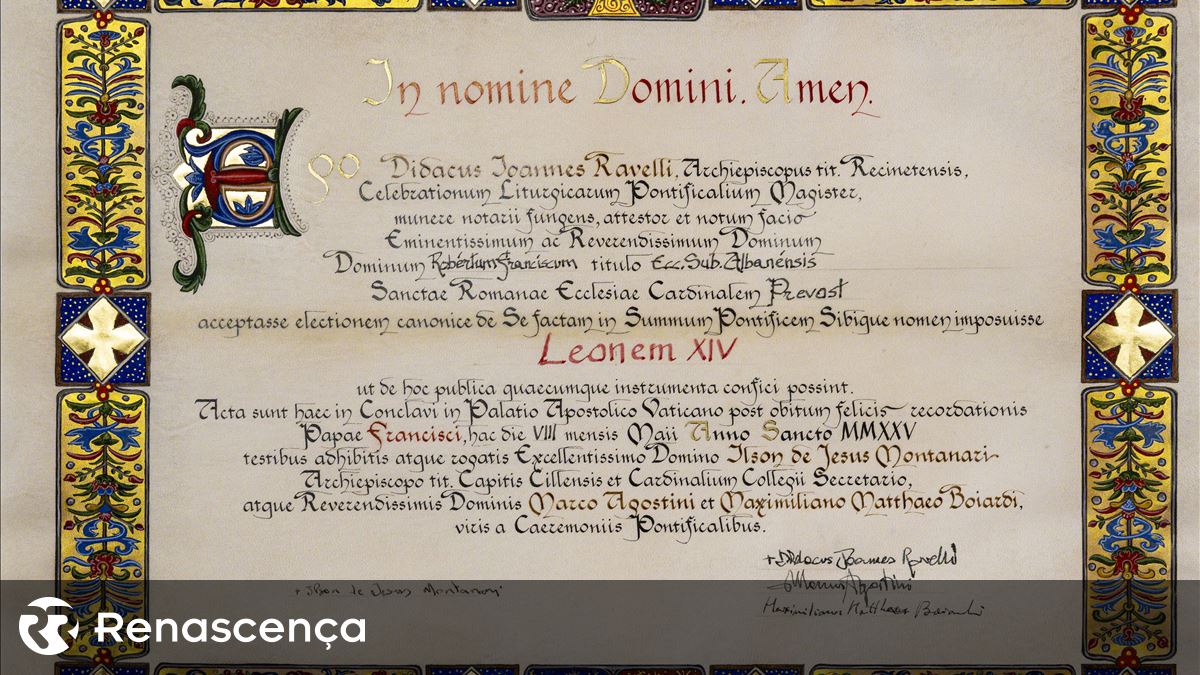 In nomine Domini. Amen.
Ego Didacus Ioannes Ravelli, Archiepiscopus tit. Recinetensis,
Celebrationum Liturgicarum Pontificalium Magister,
munere notarii fungens, attestor et notum facio
Eminentissimum ac Reverendissimum Dominum
Dominum Robertum Franciscum titulo Ecc. Sub. Albanensis
Sanctae Romanae Ecclesiae Cardinalem Prevost
acceptasse electionem canonice de Se factam in Summum Pontificem Sibique nomen imposuisse
Leonem XIV
ut de hoc publica quaecumque instrumenta confici possint.
Acta sunt haec in Conclavi in Palatio Apostolico Vaticano post obitum felicis recordationis
Papae Francisci, hac die VIII mensis Maii Anno Sancto MMXXV
testibus adhibitis atque rogatis Excellentissimo Domino Ilson de Jesus Montanari
Archiepiscopo tit. Capitis Cillensis et Cardinalium Collegii Secretario,
atque Reverendissimis Dominis Marco Agostini et Maximiliano Matthaeo Boiardi,
viris a Caeremoniis Pontificalibus.
+ Didacus Joannes Ravelli
Marcus Agostini
+ Ilson de Jesus Montanari
Maximilianus Matthaeus Boiardi
Renascença